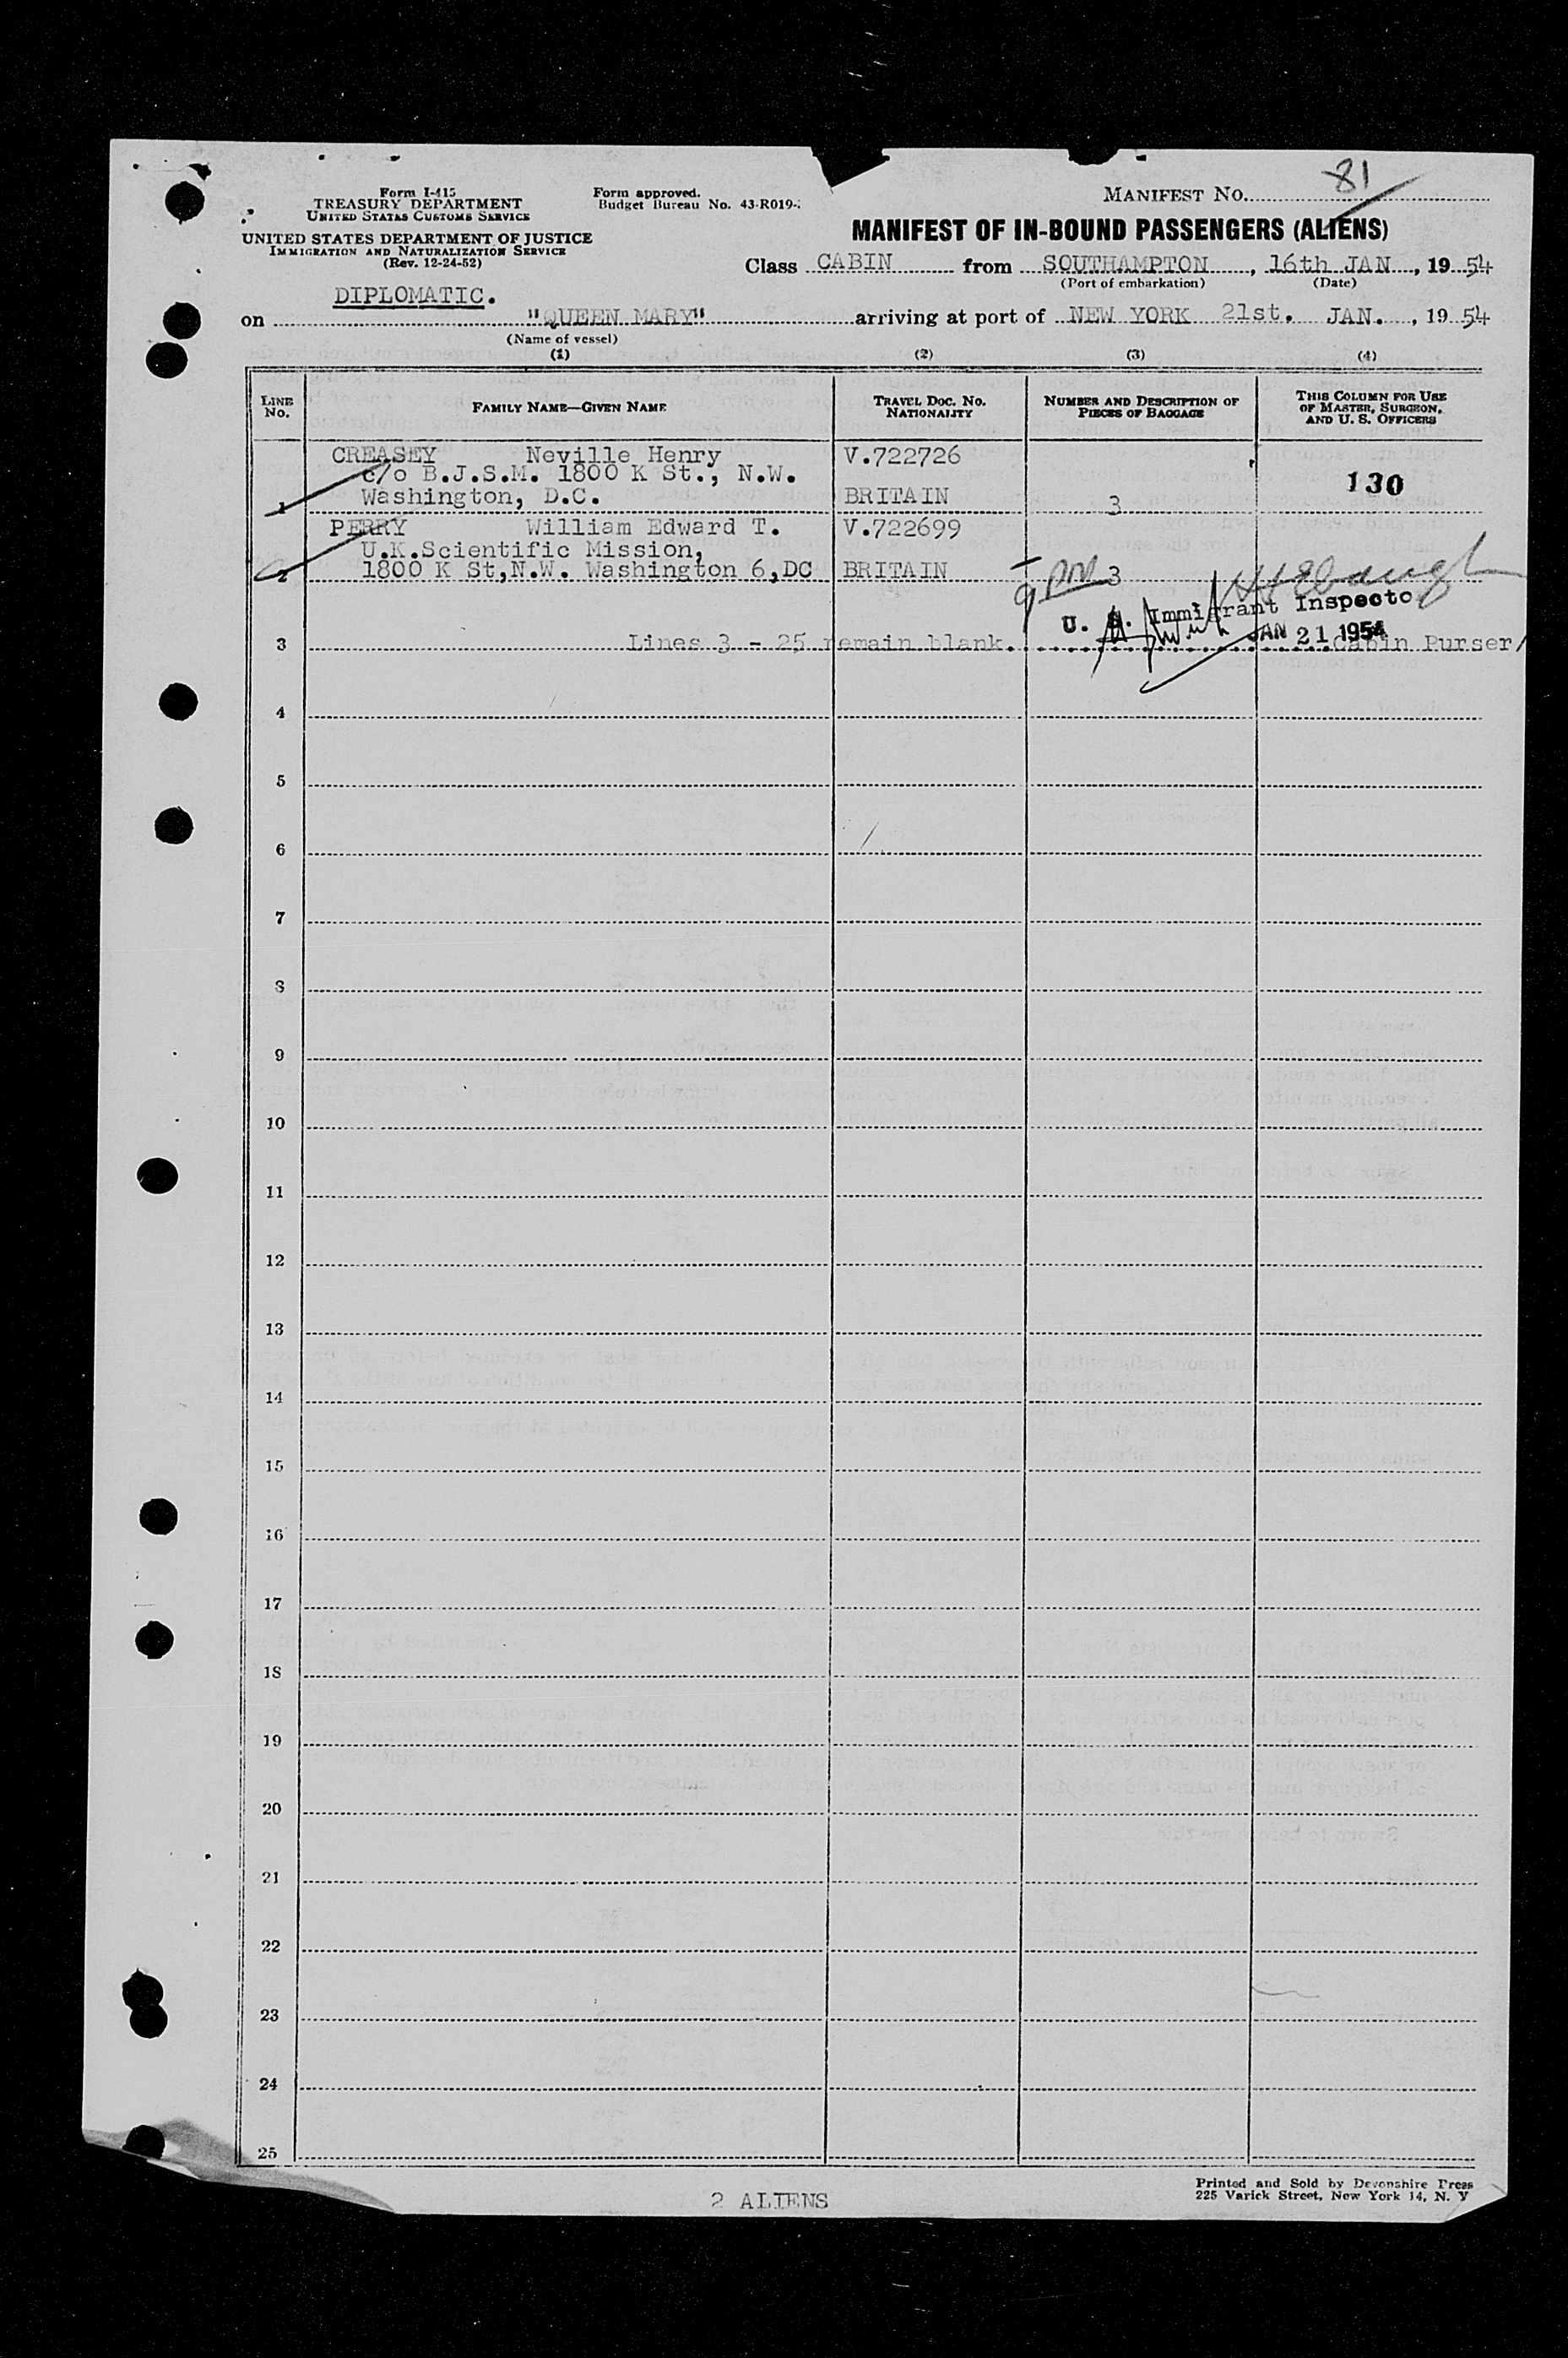 Form I-415
TREASURY DEPARTMENT
UNITED STATES CUSTOMS SERVICE
UNITED STATES DEPARTMENT OF JUSTICE
IMMIGRATION AND NATURALIZATION SERVICE
(Rev. 12-24-52)
Form approved.
Budget Bureau No. 43-R019-
MANIFEST No. 81
MANIFEST OF IN-BOUND PASSENGERS (ALIENS)
Class CABIN from SOUTHAMPTON, 16th JAN, 19 54
(Port of embarkation) (Date)
DIPLOMATIC.
on "QUEEN MARY" arriving at port of NEW YORK 21st. JAN., 19 54
(Name of vessel)
(1) (2) (3) (4)
LINE No. FAMILY NAME—GIVEN NAME TRAVEL DOC. No. NATIONALITY NUMBER AND DESCRIPTION OF PIECES OF BAGGAGE THIS COLUMN FOR USE OF MASTER, SURGEON, AND U. S. OFFICERS
CREASEY Neville Henry V.722726
c/o B.J.S.M. 1800 K St., N.W. 130
1 Washington, D.C. BRITAIN 3
PERRY William Edward T. V.722699
U.K.Scientific Mission,
2 1800 K St,N.W. Washington 6,DC BRITAIN 3
9 pm
U. S. Immigrant Inspecto
JAN 21 1954
3 Lines 3 - 25 remain blank. Cabin Purser/
4
5
6
7
8
9
10
11
12
13
14
15
16
17
18
19
20
21
22
23
24
25
2 ALIENS
Printed and Sold by Devonshire Press
225 Varick Street, New York 14, N. Y